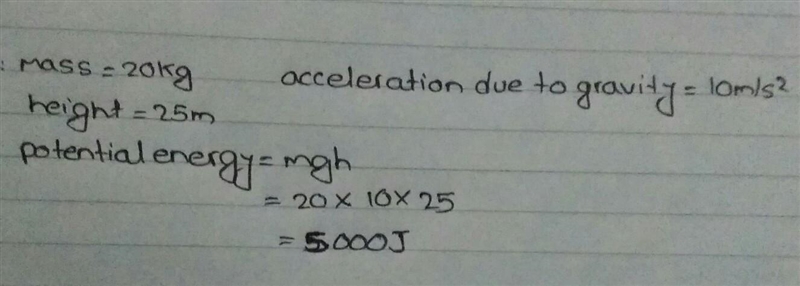 : mass = 20kg acceleration due to gravity = 10m/s²
height = 25m
potential energy = mgh
= 20 × 10 × 25
= 5000J